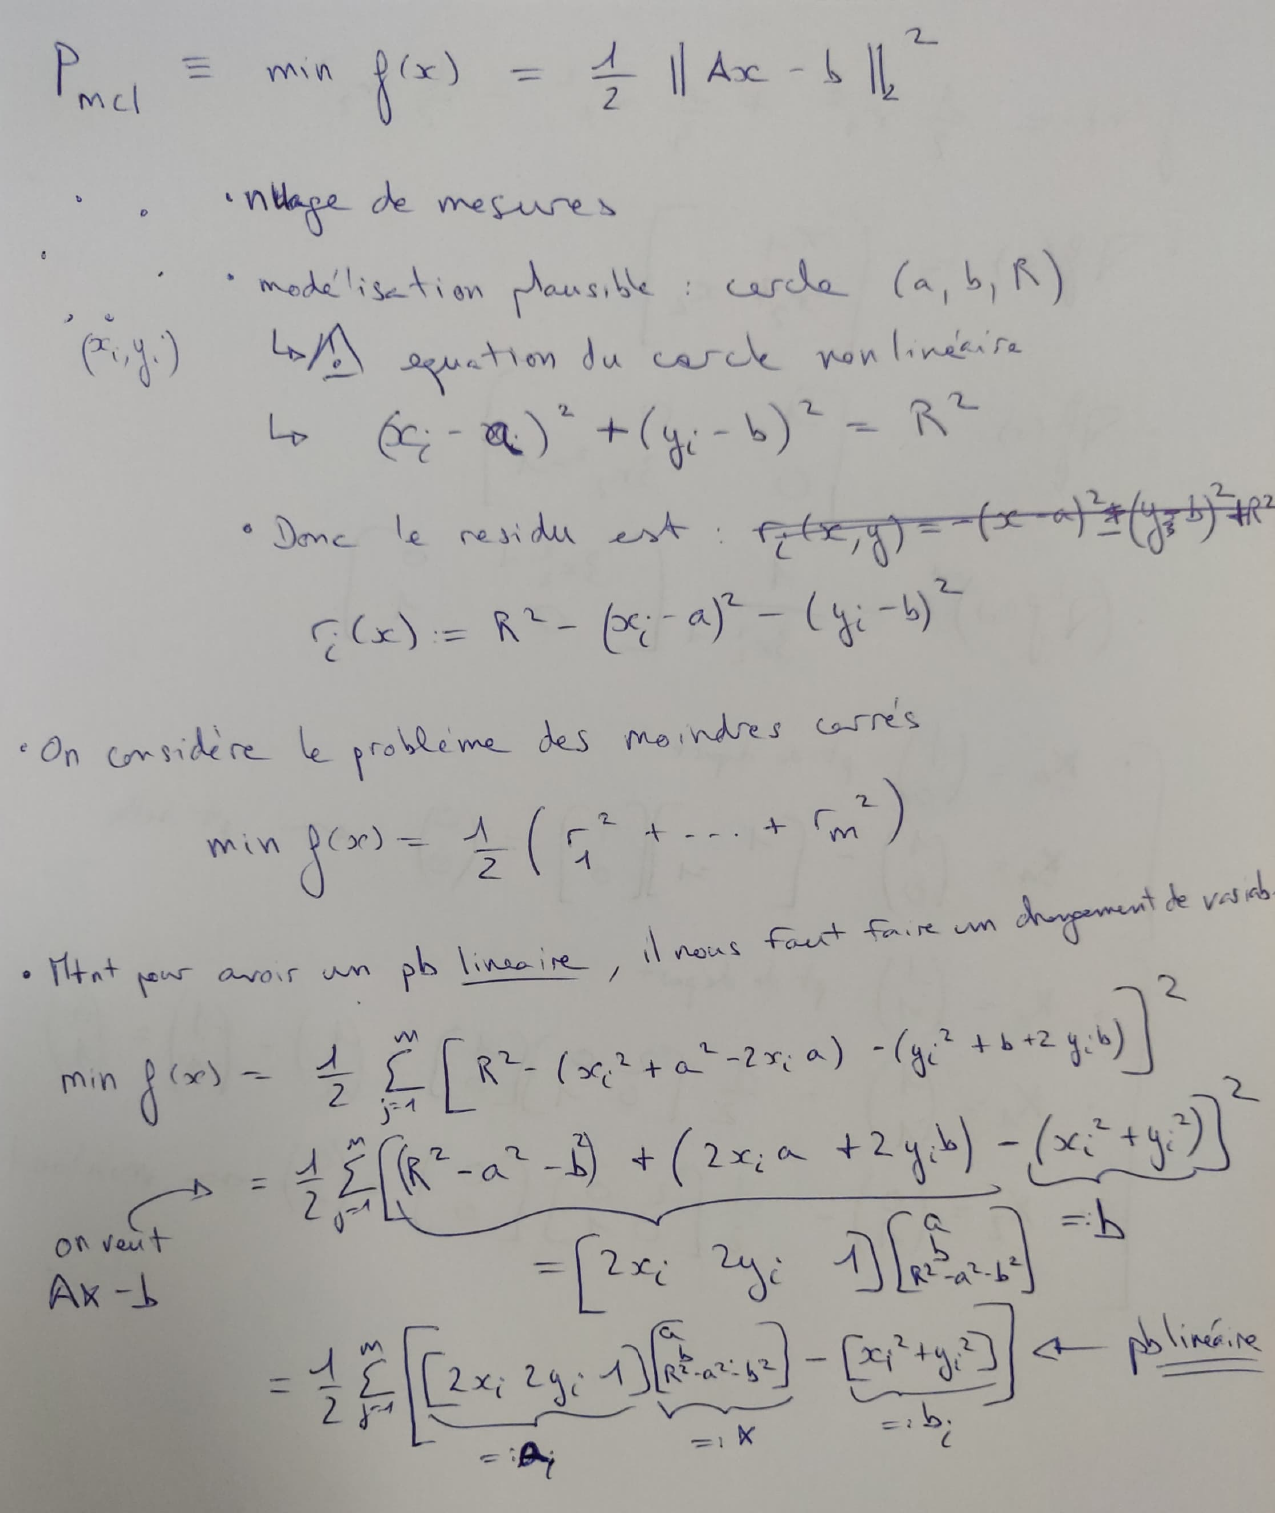 P_mcl ≡ min f(x) = 1/2 ‖Ax - b‖₂²
• nuage de mesures
• modélisation plausible : cercle (a, b, R)
(x_i, y_i) ↳ ⚠ equation du cercle non linéaire
↳ (x_i - a)² + (y_i - b)² = R²
• Donc le residu est : r_i(x, y) = -(x - a)² - (y - b)² + R²
r_i(x) := R² - (x_i - a)² - (y_i - b)²
• On considère le problème des moindres carrés
min f(x) = 1/2 (r_1² + ... + r_m²)
• Mtnt pour avoir un pb linéaire, il nous faut faire un changement de variab.
min f(x) = 1/2 Σ_{j=1}^m [R² - (x_i² + a² - 2x_i a) - (y_i² + b + 2y_i b)]²
= 1/2 Σ_{j=1}^m [(R² - a² - b²) + (2x_i a + 2y_i b) - (x_i² + y_i²)]²
on veut =: b
Ax - b = [2x_i 2y_i 1] [a b R²-a²-b²]
= 1/2 Σ_{j=1}^m [[2x_i 2y_i 1] [a b R²-a²-b²] - [x_i² + y_i²]] ← pb linéaire
=: a_i =: x =: b_i